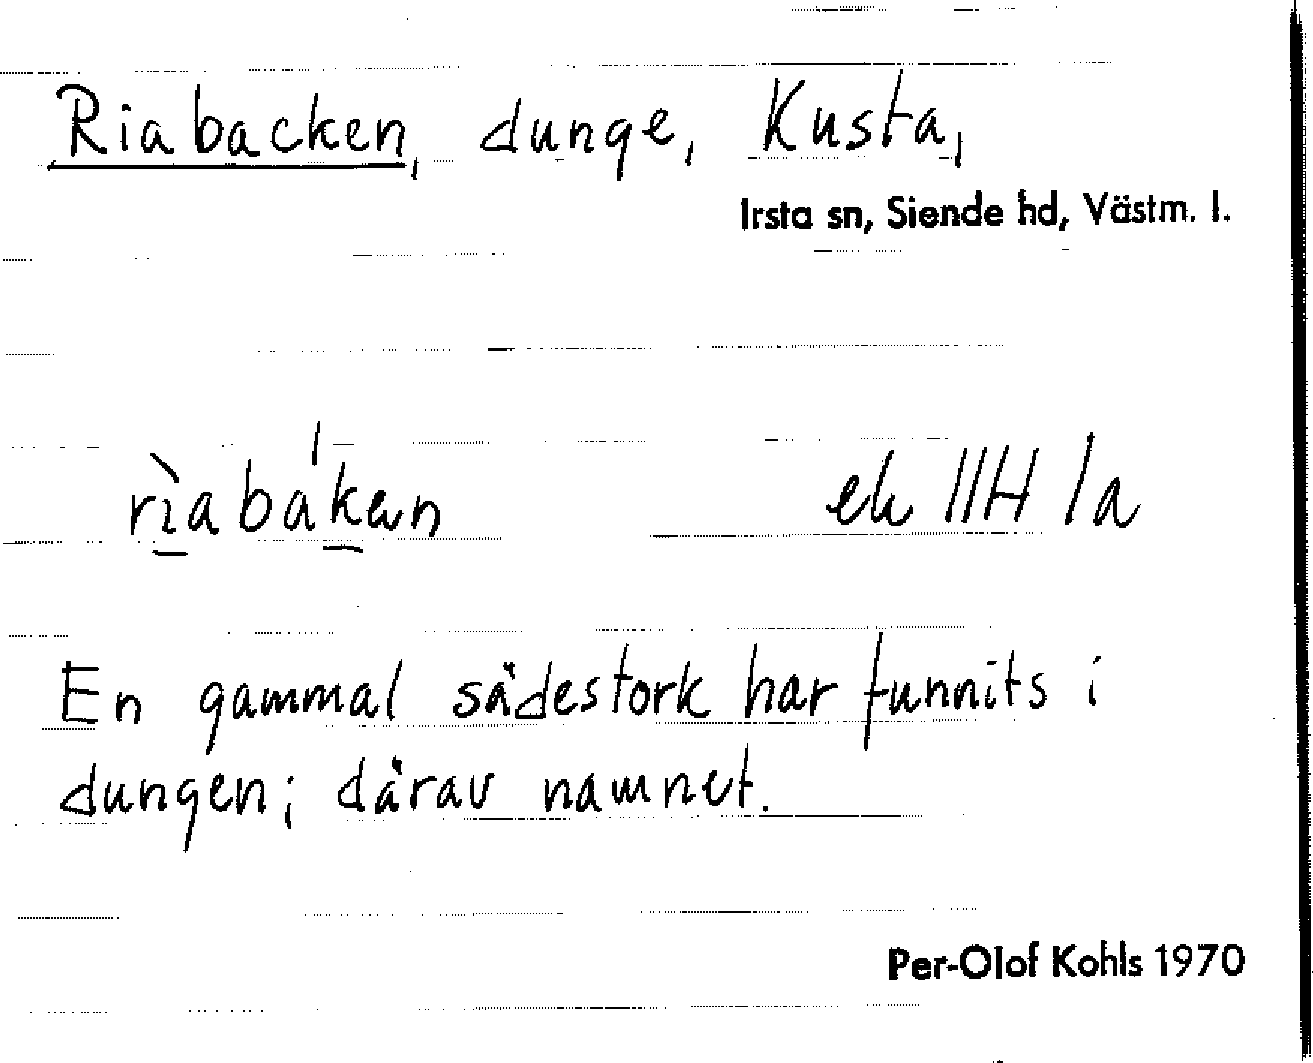 Riabacken, dunge, Kusta,
Irsta sn, Siende hd, Västm. l.
rìabákən ek IIH 1a
En gammal sädestork har funnits i
dungen; därav namnet.
Per-Olof Kohls 1970